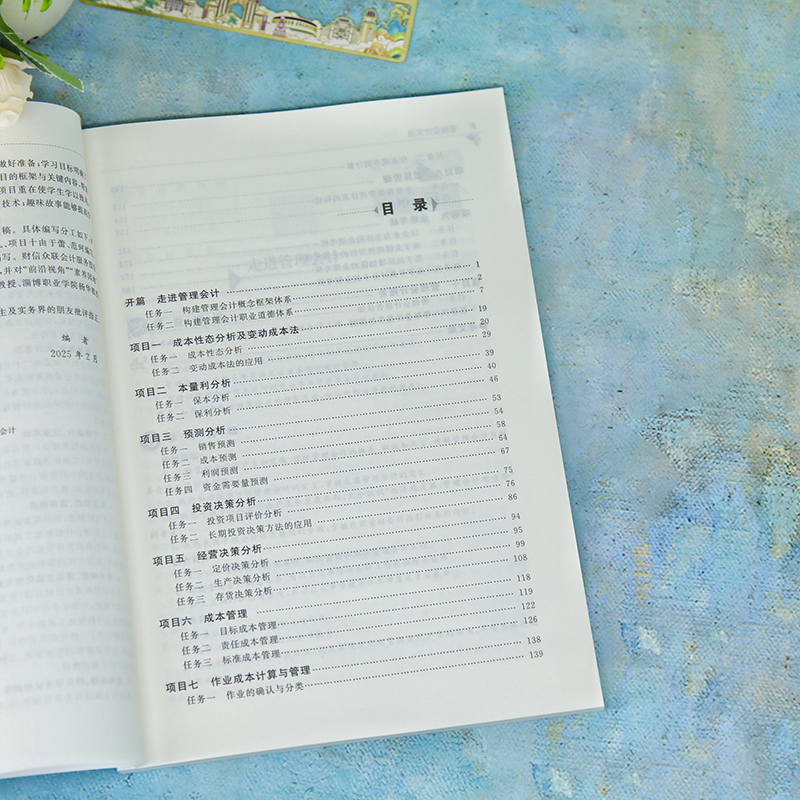 做好准备；学习目标明确了
目的框架与关键内容，帮
项目重在使学生学以致用
技术；趣味故事能够拓
稿。具体编写分工如下：
，项目十由于蕾、范珂编写
写。财信众联会计服务
，并对“前沿视角”“素养
教授、淄博职业学院杨华
生及实务界的朋友批评指正
编 者
2025 年 2 月
会计
目 录
开篇 走进管理会计 1
任务一 构建管理会计概念框架体系 2
任务二 构建管理会计职业道德体系 7
项目一 成本性态分析及变动成本法 19
任务一 成本性态分析 20
任务二 变动成本法的应用 29
项目二 本量利分析 39
任务一 保本分析 40
任务二 保利分析 46
项目三 预测分析 53
任务一 销售预测 54
任务二 成本预测 58
任务三 利润预测 64
任务四 资金需要量预测 67
项目四 投资决策分析 75
任务一 投资项目评价分析 76
任务二 长期投资决策方法的应用 86
项目五 经营决策分析 94
任务一 定价决策分析 95
任务二 生产决策分析 99
任务三 存货决策分析 108
项目六 成本管理 118
任务一 目标成本管理 119
任务二 责任成本管理 122
任务三 标准成本管理 126
项目七 作业成本计算与管理 138
任务一 作业的确认与分类 139